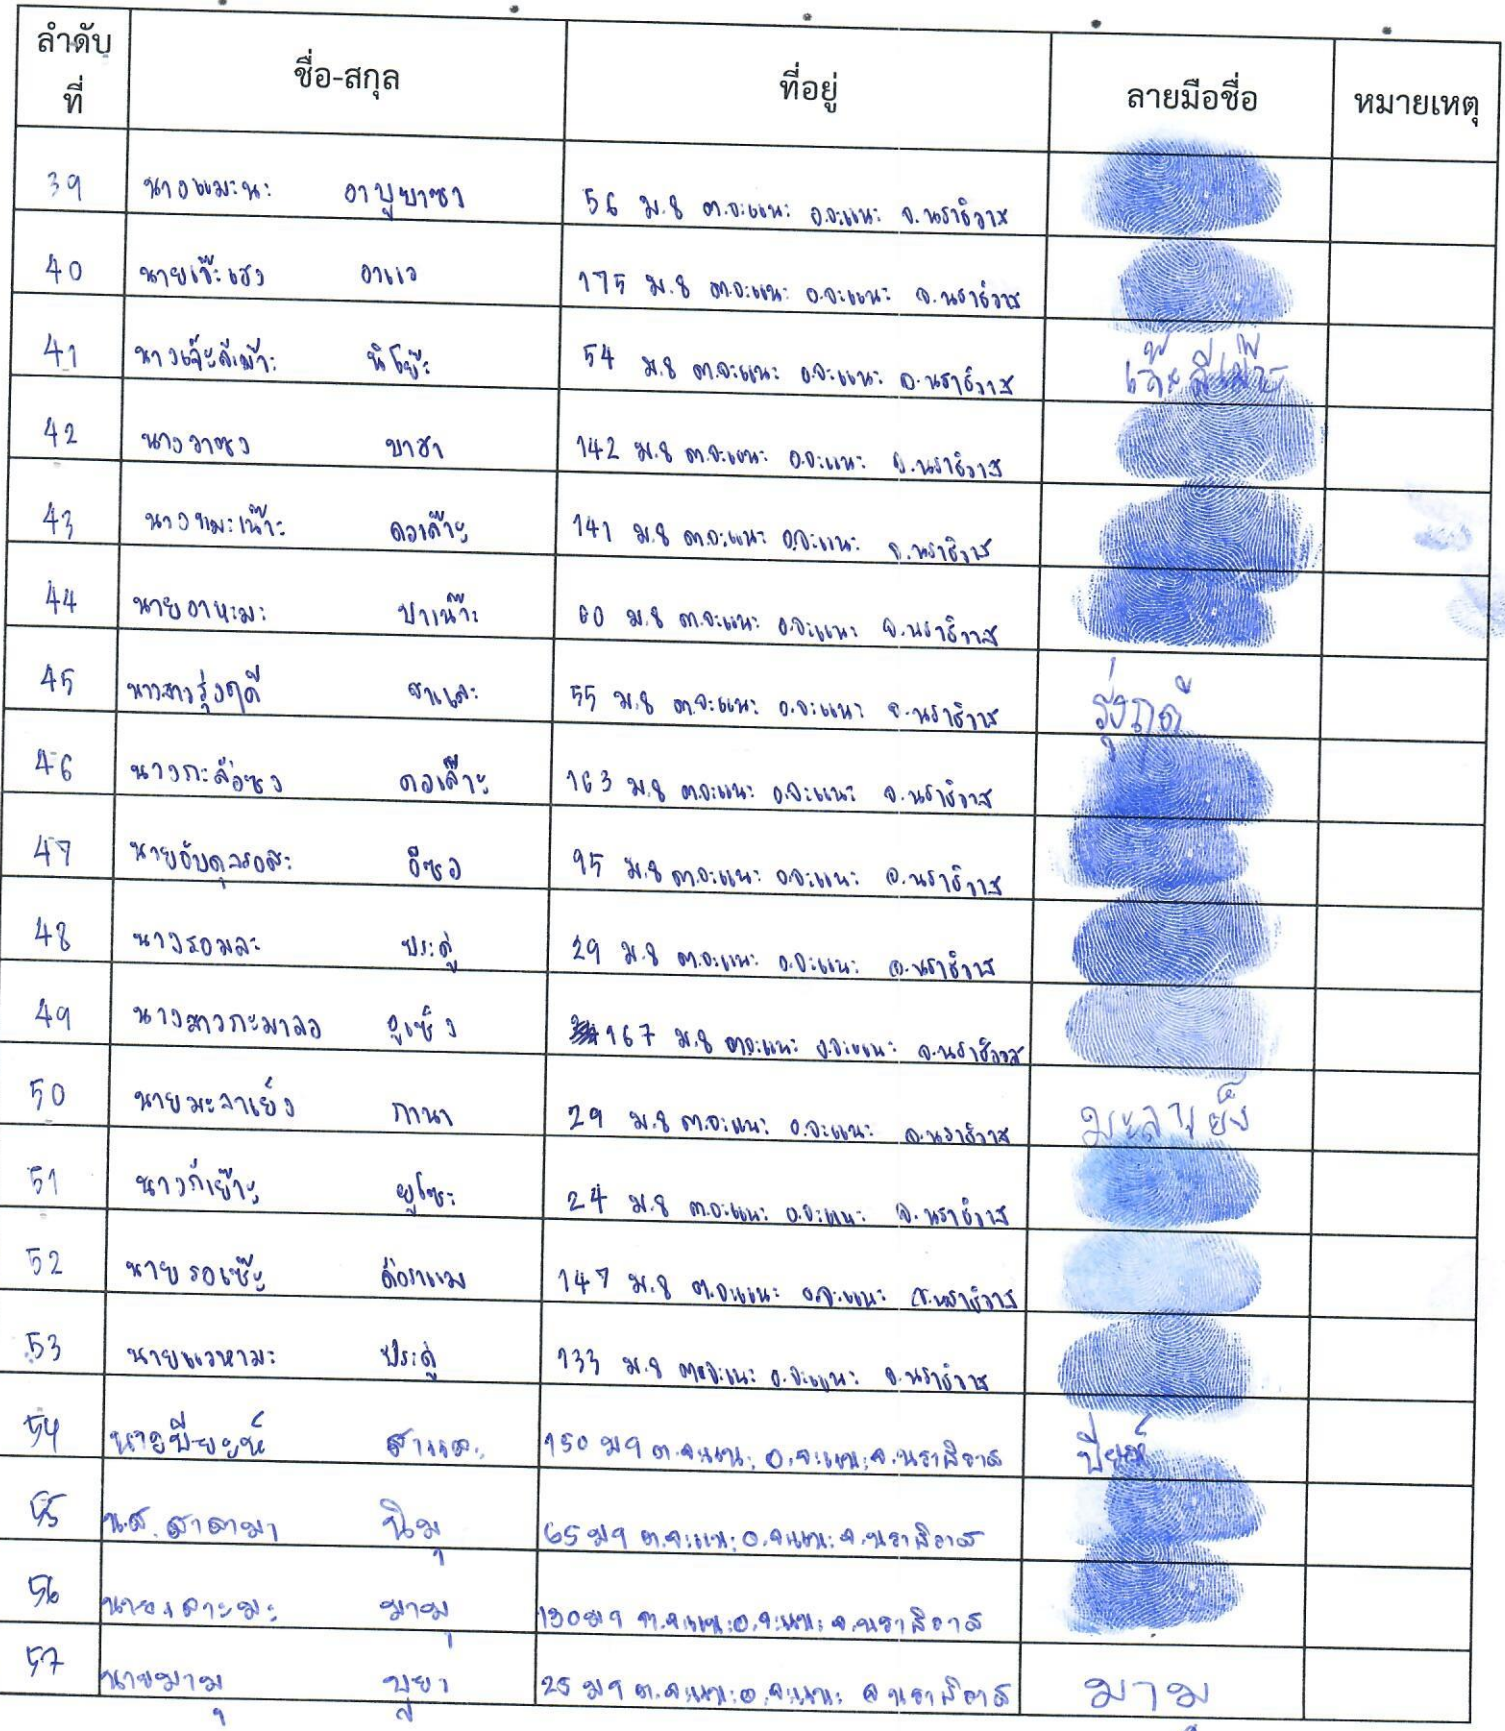 ลำดับ
ที่
ชื่อ-สกุล
ที่อยู่
ลายมือชื่อ
หมายเหตุ
39 นางแมะนะ อาบูยาซา 56 ม.8 ต.จะแนะ อ.จะแนะ จ.นราธิวาส
40 นายเจ๊ะเฮง อาแว 175 ม.8 ต.จะแนะ อ.จะแนะ จ.นราธิวาส
41 54 ม.8 ต.จะแนะ อ.จะแนะ จ.นราธิวาส
42 นางวาซง บาฮา 142 ม.8 ต.จะแนะ อ.จะแนะ จ.นราธิวาส
43 141 ม.8 ต.จะแนะ อ.จะแนะ จ.นราธิวาส
44 นายอาหะมะ 60 ม.8 ต.จะแนะ อ.จะแนะ จ.นราธิวาส
45 นางสาวรุ่งฤดี สาและ 55 ม.8 ต.จะแนะ อ.จะแนะ จ.นราธิวาส รุ่งฤดี
46 163 ม.8 ต.จะแนะ อ.จะแนะ จ.นราธิวาส
47 นายอับดุลรอสะ อีซอ 95 ม.8 ต.จะแนะ อ.จะแนะ จ.นราธิวาส
48 นางรอมละ ประดู่ 29 ม.8 ต.จะแนะ อ.จะแนะ จ.นราธิวาส
49 นางสาวกะมาลอ 167 ม.8 ต.จะแนะ อ.จะแนะ จ.นราธิวาส
50 นายมะลาเย็ง กานา 29 ม.8 ต.จะแนะ อ.จะแนะ จ.นราธิวาส มะลาเย็ง
51 ยูโซะ 24 ม.8 ต.จะแนะ อ.จะแนะ จ.นราธิวาส
52 นายรอเซ๊ะ 147 ม.8 ต.จะแนะ อ.จะแนะ จ.นราธิวาส
53 นายแวหามะ ประดู่ 133 ม.8 ต.จะแนะ อ.จะแนะ จ.นราธิวาส
54 สาและ 150 ม9 ต.จะแนะ อ.จะแนะ จ.นราธิวาส
55 น.ส. นิมุ 65 ม9 ต.จะแนะ อ.จะแนะ จ.นราธิวาส
56 มามุ 130 ม9 ต.จะแนะ อ.จะแนะ จ.นราธิวาส
57 นายมามุ บูยา 25 ม9 ต.จะแนะ อ.จะแนะ จ.นราธิวาส มามุ